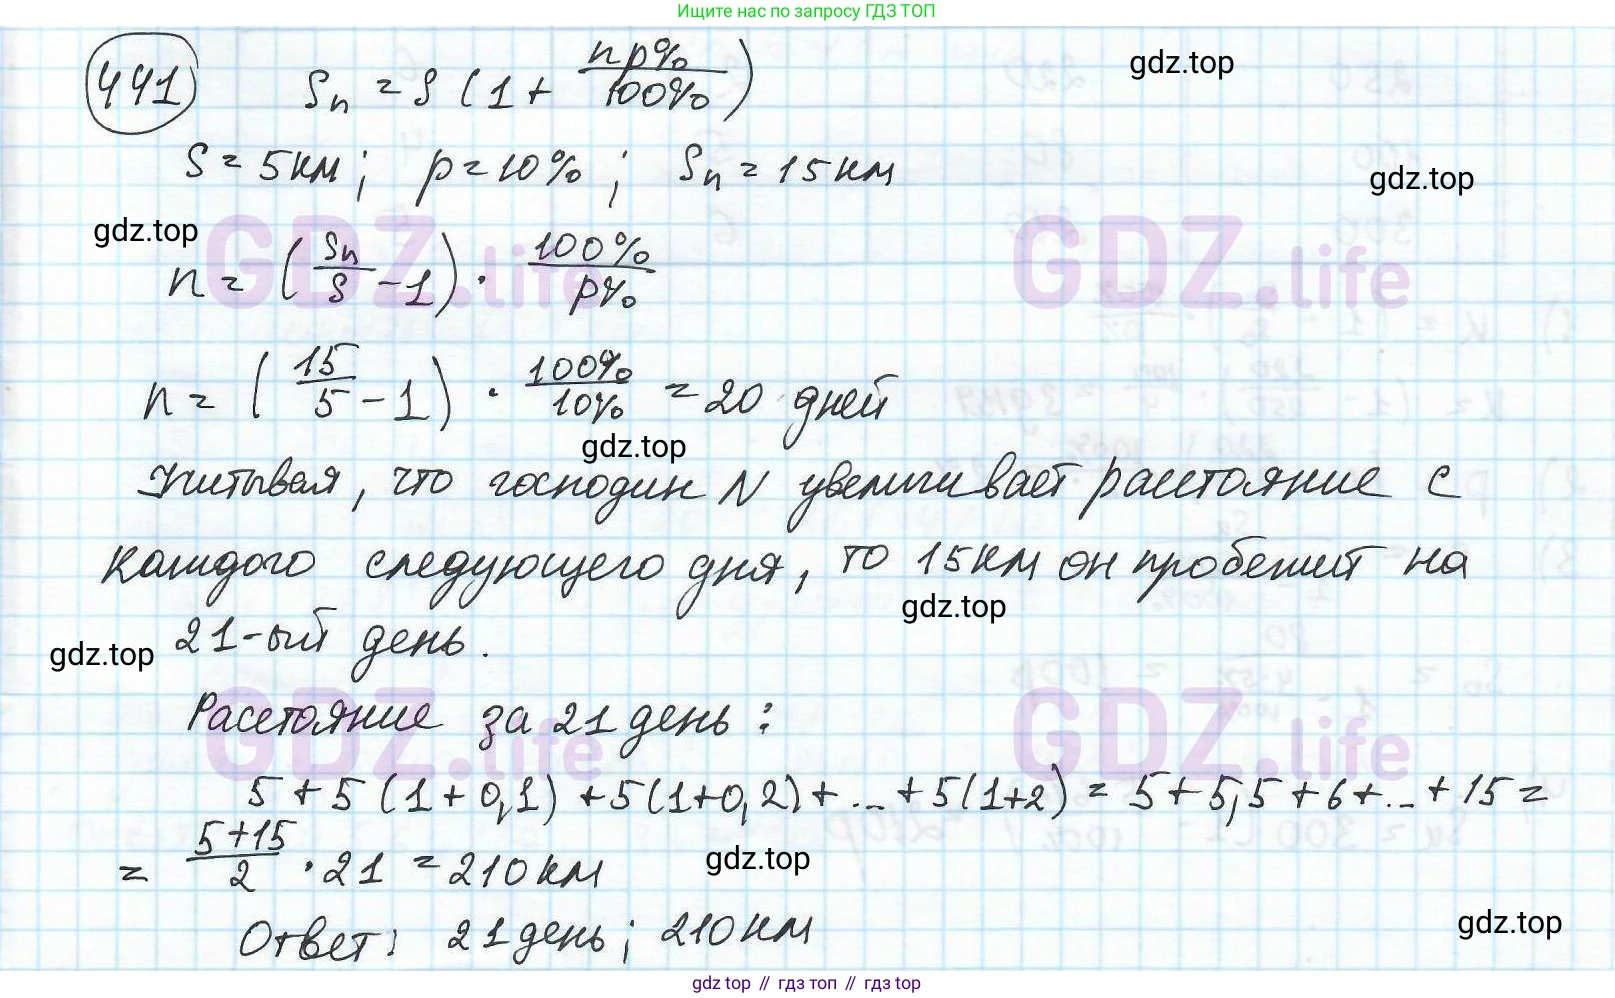 Ищите нас по запросу ГДЗ ТОП
441 Sn = S (1 + np% / 100%)
gdz.top
S = 5 км; p = 10%; Sn = 15 км
gdz.top
gdz.top
GDZ.life GDZ.life
n = (Sn / S - 1) · 100% / p%
n = (15 / 5 - 1) · 100% / 10% = 20 дней
gdz.top
Учитывая, что господин N увеличивает расстояние с
каждого следующего дня, то 15 км он пробежит на
gdz.top
21-ый день.
gdz.top
GDZ.life GDZ.life
Расстояние за 21 день:
5 + 5 (1 + 0,1) + 5 (1 + 0,2) + ... + 5 (1 + 2) = 5 + 5,5 + 6 + ... + 15 =
= 5 + 15 / 2 · 21 = 210 км
gdz.top
Ответ: 21 день; 210 км
gdz.top
gdz top // гдз топ // gdz top